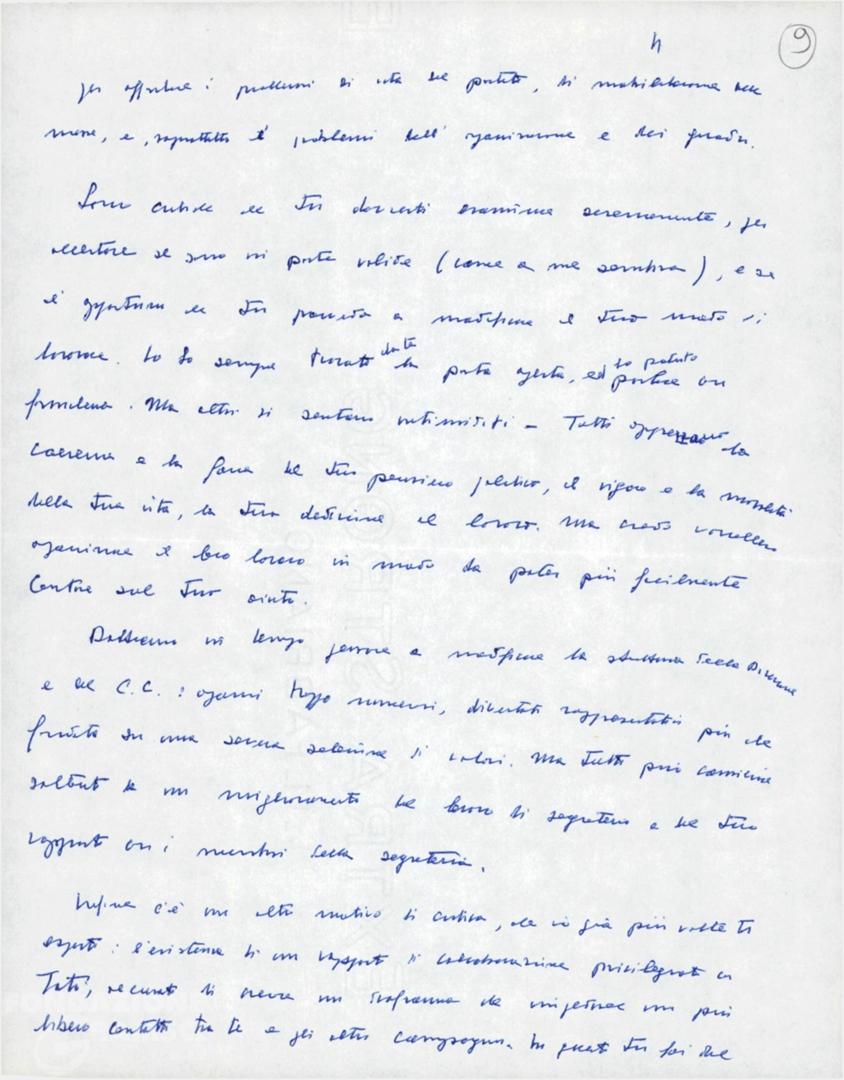 4 9
per affrontare i problemi di vita del partito, di mobilitazione delle
masse, e, soprattutto i problemi dell'organizzazione e dei quadri.
Sono critiche che Tu dovresti esaminare serenamente, per
accertare se sono in parte valide (come a me sembra), e se
è opportuno che Tu provveda a modificare il Tuo modo di
lavorare. Io ho sempre trovato da te la porta aperta, ed ho potuto parlare con
franchezza. Ma altri si sentono intimiditi - Tutti apprezzano la
coerenza e la forza del Tuo pensiero politico, il vigore e la moralità
della Tua vita, la Tua dedizione al lavoro. Ma credo vorrebbero
organizzare il loro lavoro in modo da poter più facilmente
contare sul Tuo aiuto.
Dobbiamo in tempo pensare a modificare la struttura della Direzione
e del C.C.: organi troppo numerosi, diventati rappresentativi più che
frutto di una severa selezione di valori. Ma tutto può cominciare
soltanto da un miglioramento del lavoro di segreteria e del Tuo
rapporto con i membri della segreteria.
Infine c'è un altro motivo di critica, che io già più volte ti
esposti: l'esistenza di un rapporto di collaborazione privilegiato con
Tatò, accusato di creare un diaframma che impedisce un più
libero contatto tra te e gli altri compagni. In questo Tu fai del